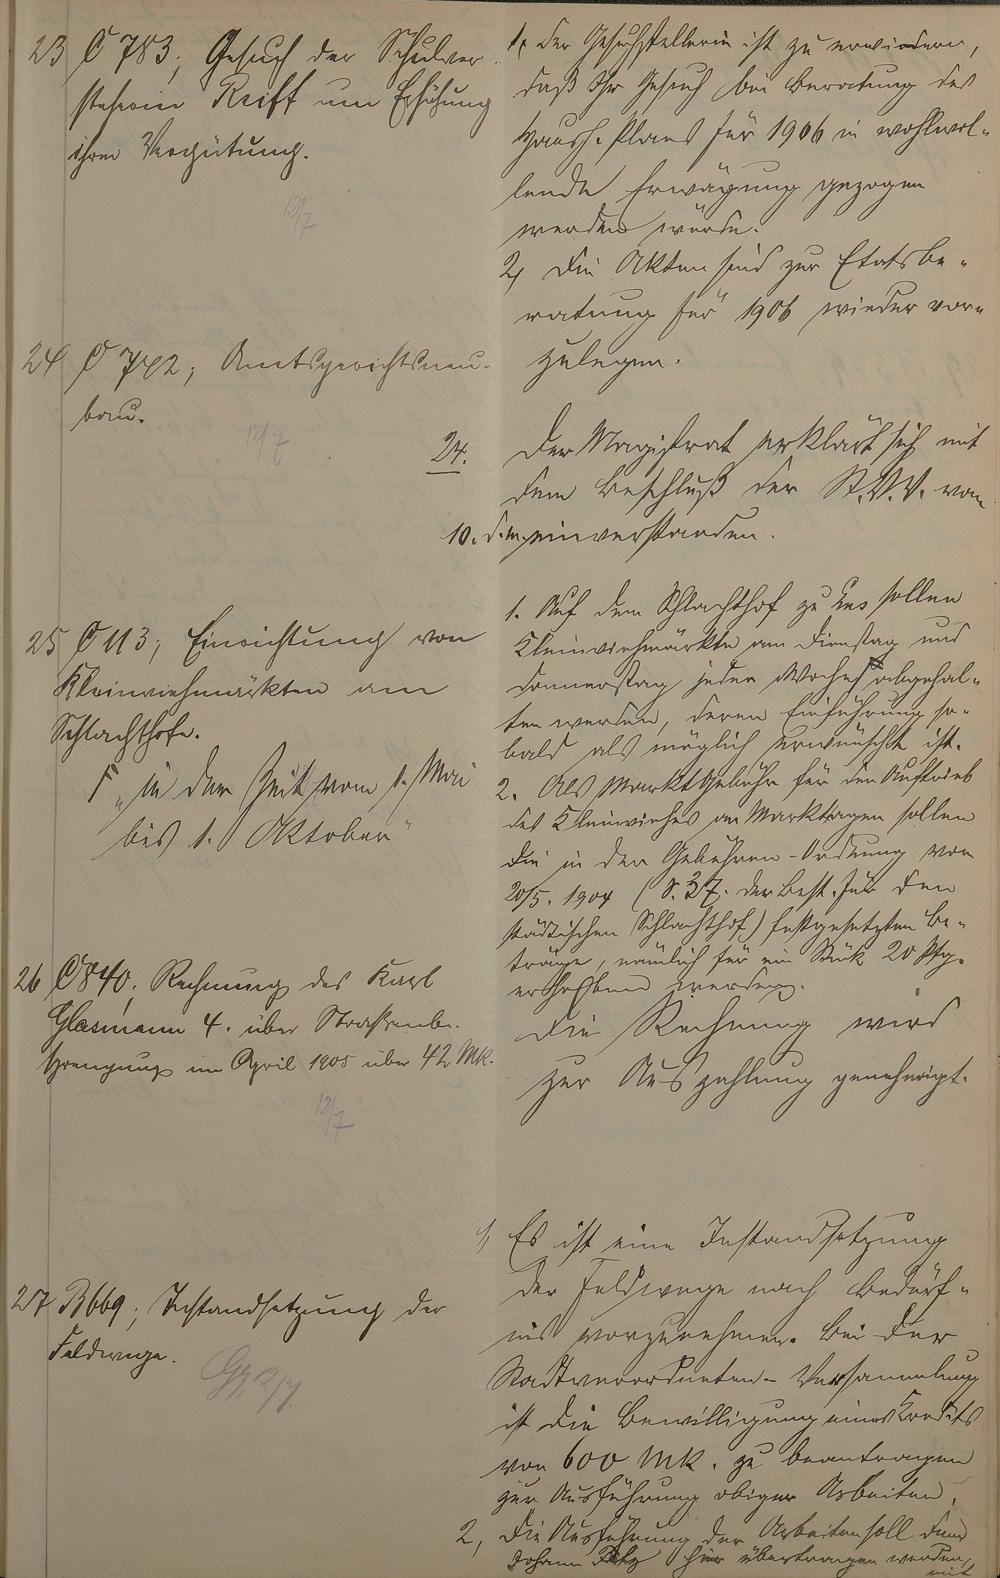 23 C 783; Gesuch der Schulvor-
steherin Reiff um Erhöhung
ihrer Vergütung.
12/7
1, Der Gesuchstellerin ist zu erwiedern,
daß Ihr Gesuch bei Beratung des
Haush. Planes für 1906 in wohlwol-
lende Erwägung gezogen
werden würde.
2, Die Akten sind zur Etatsbe-
ratung für 1906 wieder vor-
zulegen.
24 C 742; Amtsgerichtsneu-
bau.
12/7
24. Der Magistrat erklärt sich mit
dem Beschluß der St.V.V. vom
10. d.M. einverstanden.
25 C 113; Einrichtung von
Kleinviehmärkten am
Schlachthofe.
F „in der Zeit vom 1. Mai
bis 1. Oktober"
1. Auf dem Schlachthof zu sollen
Kleinviehmärkte am Dienstag und
Donnerstag jeder Woche F abgehal-
ten werden, deren Einführung so-
bald als möglich erwünscht ist.
2. Als Marktgebühr für den Auftrieb
des Kleinviehes an Markttagen sollen
die in der Gebühren-Ordnung vom
20/5. 1904 (S. 37. der Best. für den
städtischen Schlachthof) festgesetzten Be-
träge, nämlich für ein Stük 20 Pfg.
erhoben werden.
26 C 840; Rechnung des Karl
Glasmann 4. über Straßenbe-
sprengung im April 1905 über 42 Mk.
12/7
Die Rechnung wird
zur Auszahlung genehmigt.
27 B 669; Instandsetzung der
Feldwege.
12/7
1, Es ist eine Instandsetzung
der Feldwege nach Bedürf-
nis vorzunehmen. Bei der
Stadtverordneten-Versammlung
ist die Bewilligung eines Kredits
von 600 Mk. zu beantragen
zur Ausführung obiger Arbeiten.
2, Die Ausführung der Arbeiten soll dem
Johann hier übertragen werden,
mit